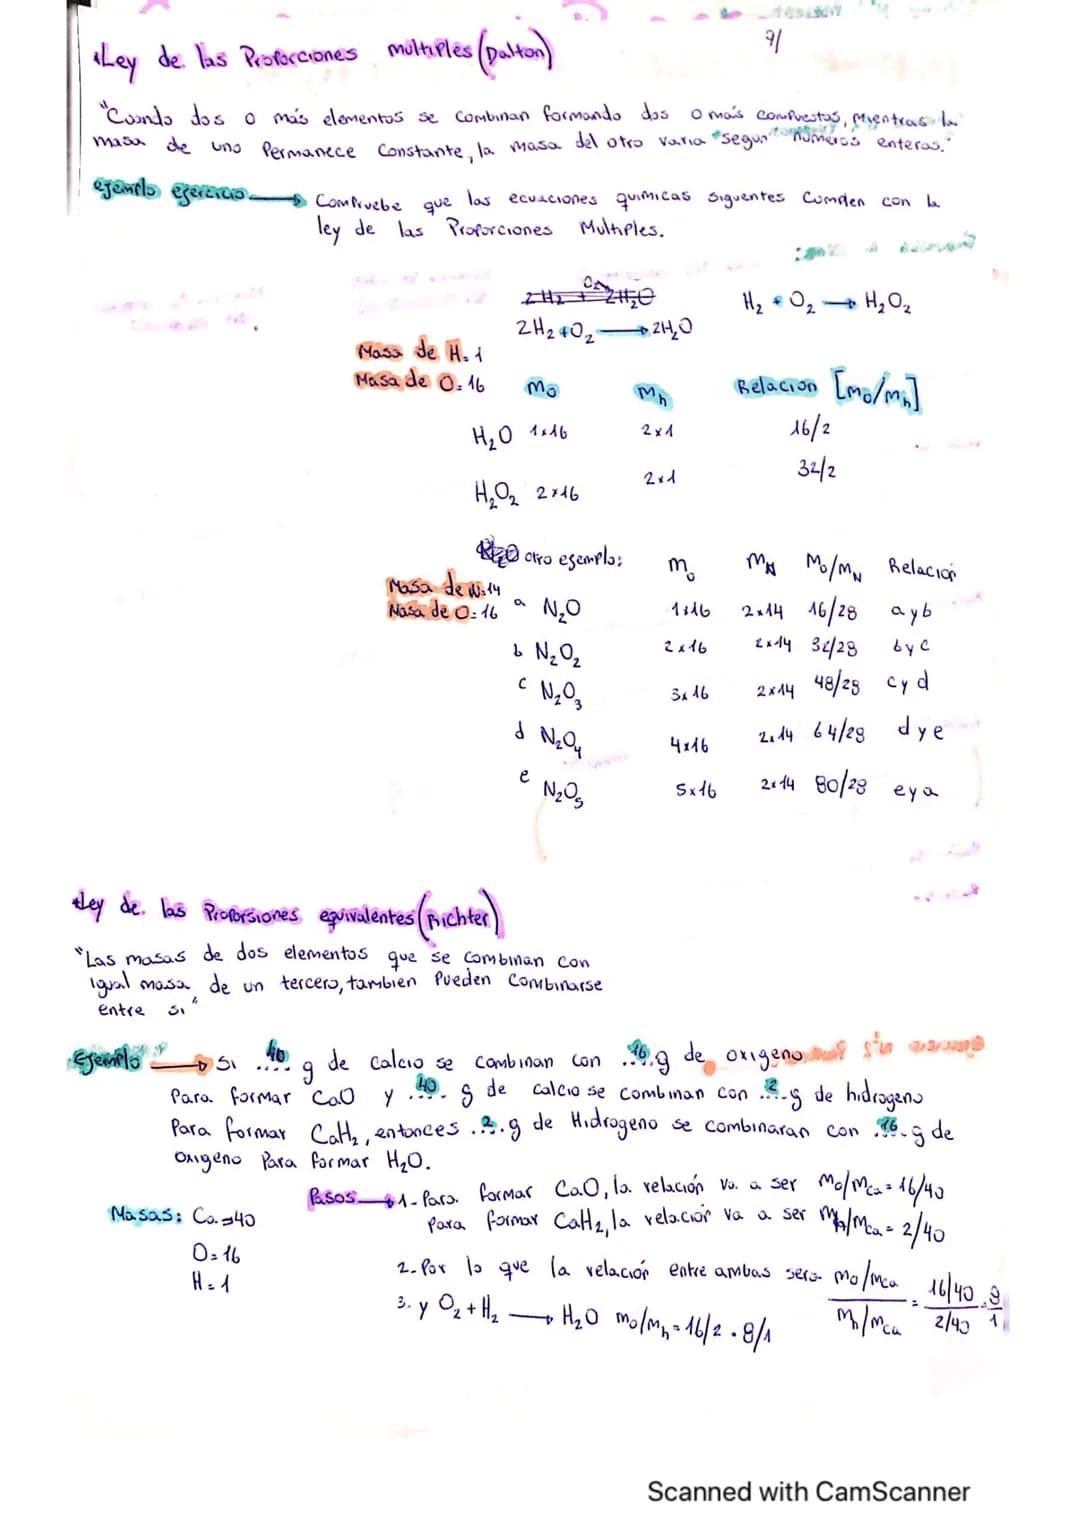 Ley de las Proporciones múltiples (Dalton)
9/
"Cuando dos o más elementos se combinan formando dos o más compuestos, Mientras la
masa de uno Permanece Constante, la masa del otro varia "segun números enteros."
ejemplo ejercicio → Compruebe que las ecuaciones químicas siguentes Cumplen con la
ley de las Proporciones Multiples.
2H₂ + O₂ → 2H₂O
H₂ + O₂ → H₂O₂
Masa de H=1
Masa de O=16
mo mh Relacion [mo/mh]
H₂O 1x16 2x1 16/2
H₂O₂ 2x16 2x1 32/2
otro esemplo: mo mN mo/mN Relacion
Masa de N=14
Masa de O=16
a N₂O 1x16 2x14 16/28 a y b
b N₂O₂ 2x16 2x14 32/28 b y c
c N₂O₃ 3x16 2x14 48/28 c y d
d N₂O₄ 4x16 2x14 64/28 d y e
e N₂O₅ 5x16 2x14 80/28 e y a
Ley de las Proporsiones equivalentes (Richter)
"Las masas de dos elementos que se combinan con
igual masa de un tercero, tambien Pueden Combinarse
entre si"
Ejemplo → Si ..40.. g de calcio se combinan con ..16.. g de oxigeno
Para formar CaO y ..40.. g de calcio se combinan con ..2.. g de hidrogeno
Para formar CaH₂, entonces ..2.. g de Hidrogeno se combinaran con ..16.. g de
Oxigeno Para formar H₂O.
Pasos → 1- Para formar CaO, la relación va a ser mo/mca = 16/40
Para formar CaH₂, la relacion va a ser mh/mca = 2/40
Masas: Ca=40
O=16
H=1
2- Por lo que la relación entre ambas sera mo/mca / mh/mca = 16/40 / 2/40 = 8/1
3- y O₂ + H₂ → H₂O mo/mh = 16/2 = 8/1
Scanned with CamScanner